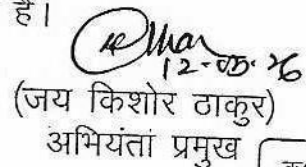 है।
12-05-26
(जय किशोर ठाकुर)
अभियंता प्रमुख